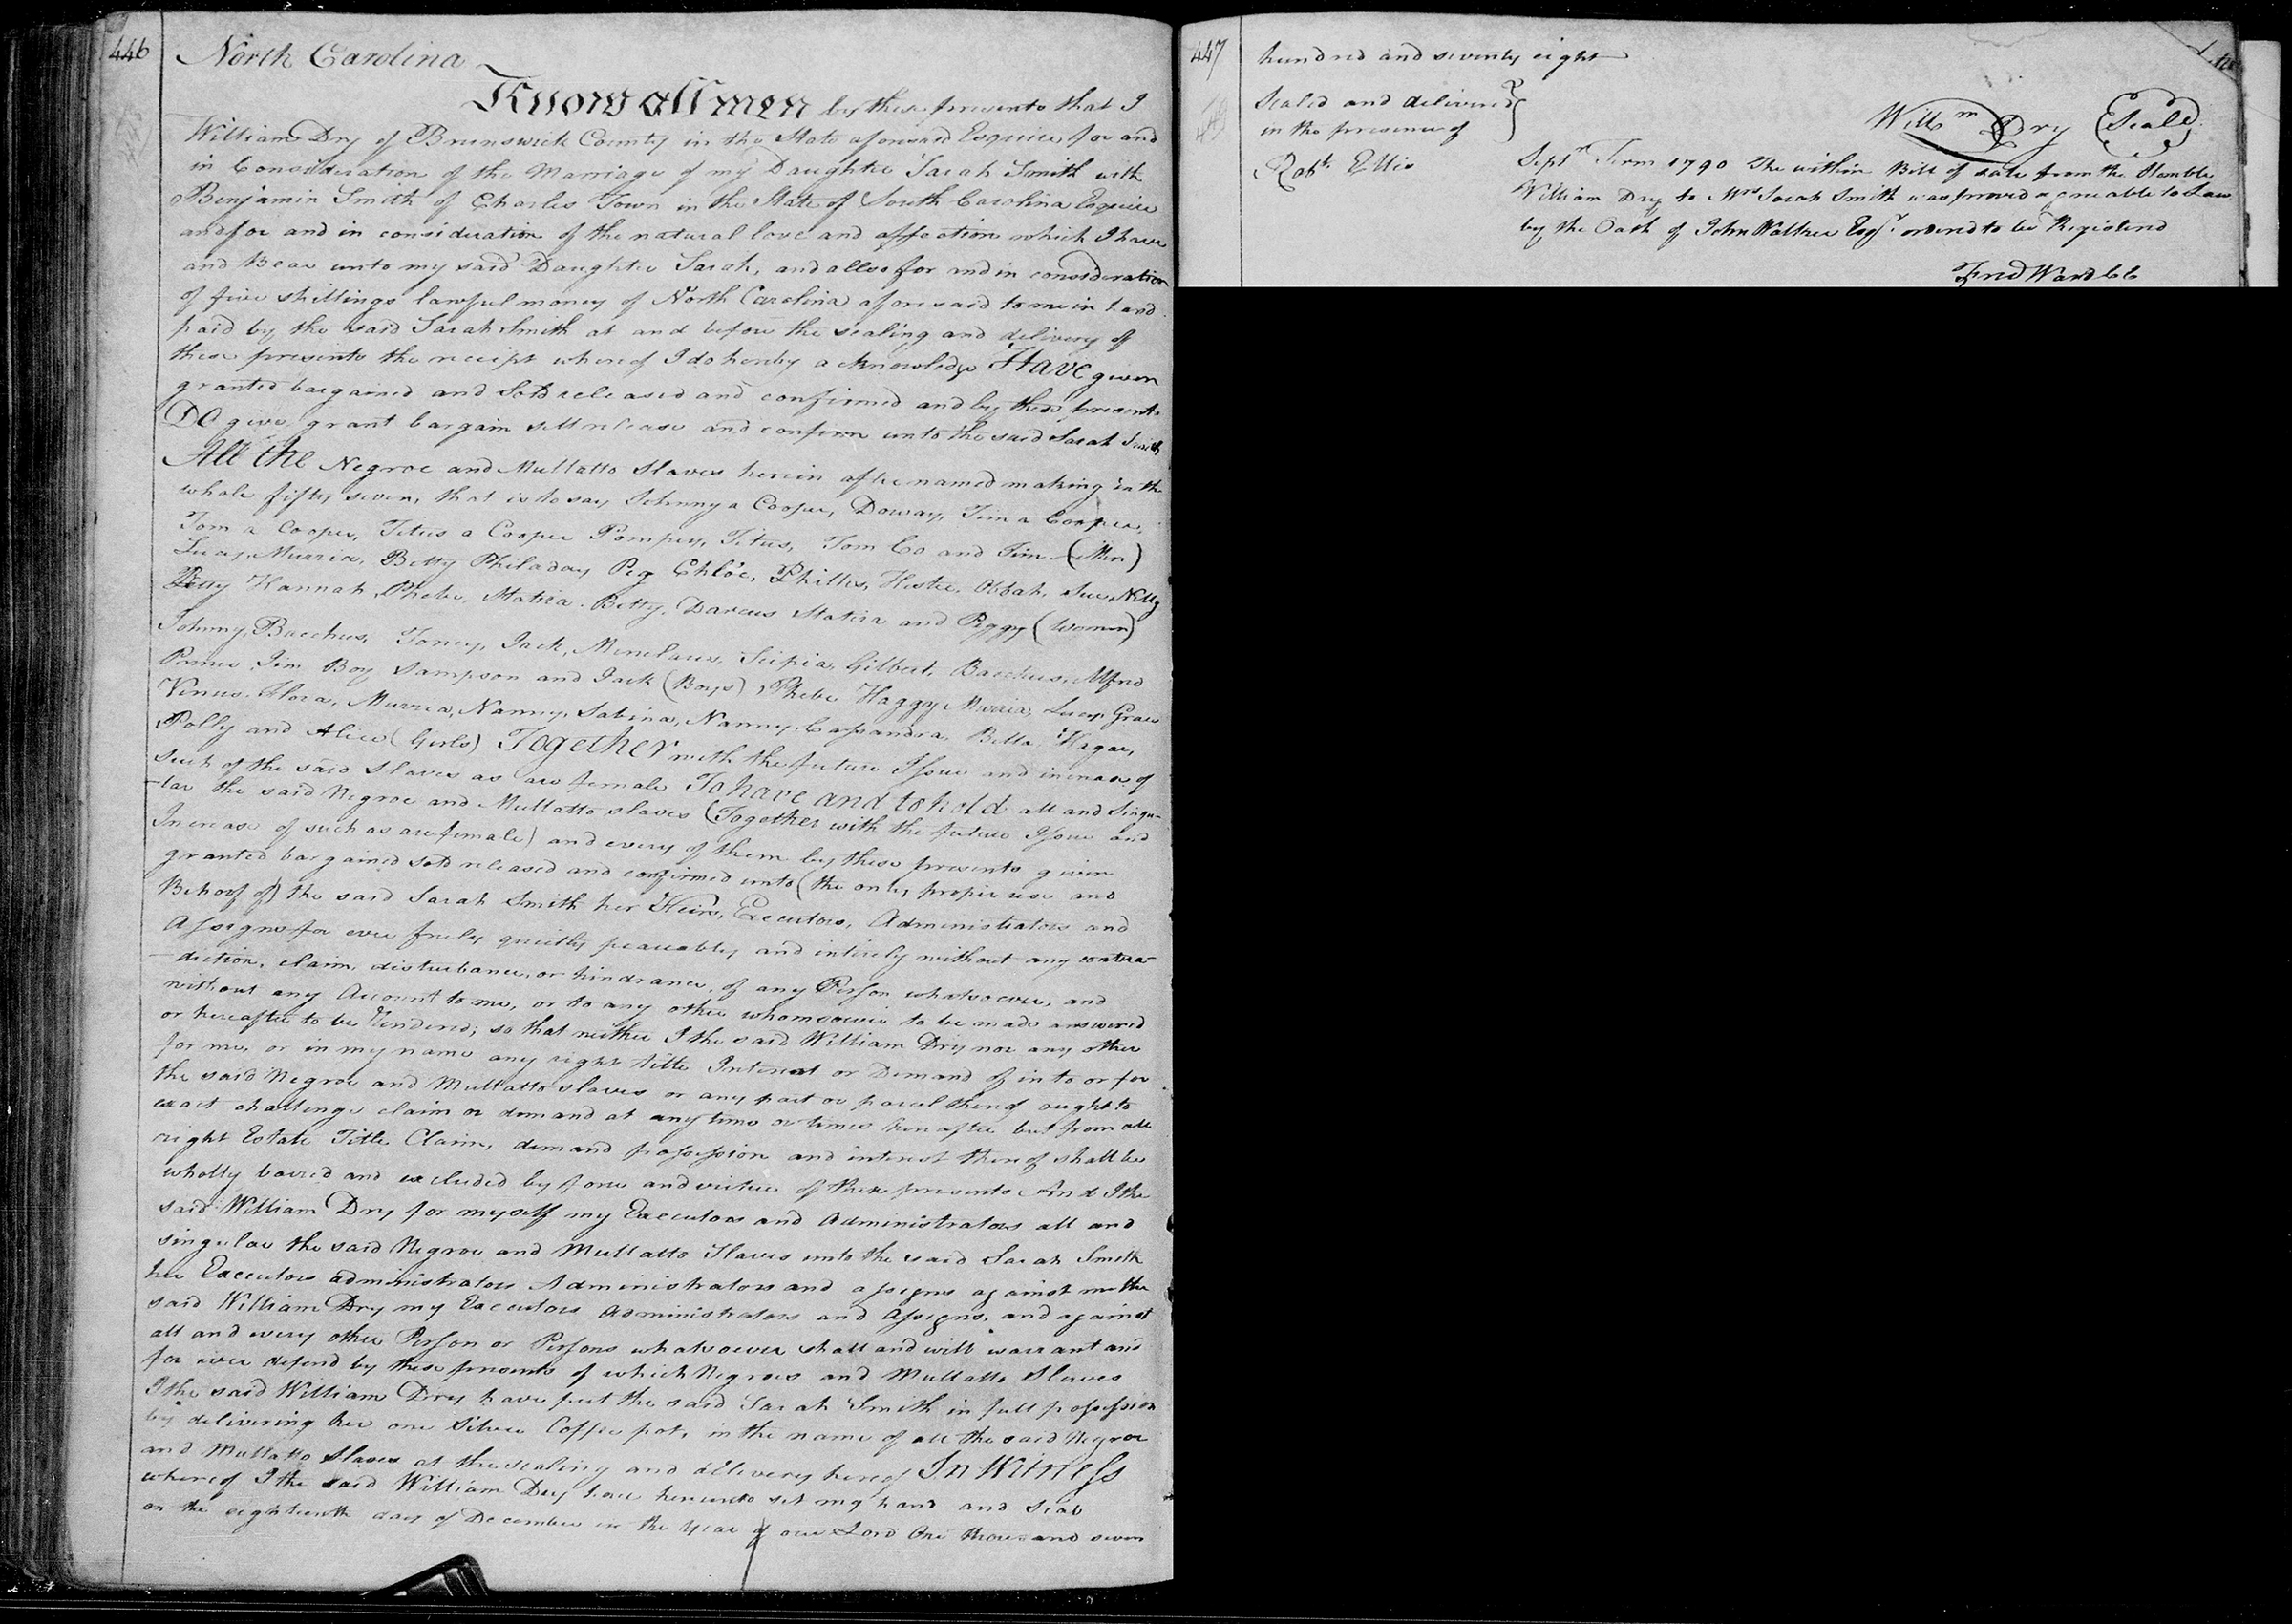 446
North Carolina
Know all men by these presents that I
William Dry of Brunswick County in the State aforesaid Esquire for and
in Consideration of the Marriage of my Daughter Sarah Smith with
Benjamin Smith of Charles Town in the State of South Carolina Esquire
and for and in consideration of the natural love and affection which I have
and Bear unto my said Daughter Sarah, and allso for and in consideration
of five shillings lawful money of North Carolina aforesaid to me in hand
paid by the said Sarah Smith at and before the sealing and delivery of
these presents the receipt whereof I do hereby acknowledge Have given
granted bargained and Sold released and confirmed and by these presents
Do give grant bargain sell release and confirm unto the said Sarah Smith
All the Negroe and Mullatto Slaves herein after named making in the
whole fifty seven, that is to say Johnny a Cooper, Doway, Jim a Cooper,
Tom a Cooper, Titus a Cooper Pompey, Titus, Tom Co and Jim (Men)
Lucy, Murria, Betty Philaday Peg Chloe, Phillis, Hester, Obbah, Sue, Nelly
Hannah, Phebe, Statira, Betty, Darcus Statira and Peggy (Women)
Johnny, Bacchus, Toney, Jack, Menelaus, Scipio, Gilbert, Bacchus, Alfred
Primus, Jim Boy Sampson and Jack (Boys) Phebe Haggy Murria, Lucy Grace
Venus, Flora, Murria, Nanny, Sabina, Nanny, Cassandra, Bella, Hagar,
Polly and Alice (Girls) Together with the future Issue and increase of
such of the said Slaves as are female To have and to hold all and Singu-
-lar the said Negroe and Mullatto slaves (Together with the future Issue and
Increase of such as are female) and every of them by these presents given
granted bargained sold released and confirmed unto (the only proper use and
Behoof of) the said Sarah Smith her Heirs, Executors, Administrators and
Assigns for ever freely quietly peaceably and intirely without any contra-
-diction, claim, disturbance, or hindrance, of any Person whatsoever, and
without any Account to me, or to any other whomsoever to be made answered
or hereafter to be Rendered; so that neither I the said William Dry nor any other
for me, or in my name any right title Interest or Demand of in to or for
the said Negroe and Mullatto slaves or any part or parcel thereof ought to
exact challenge claim or demand at any time or times hereafter but from all
right Estate Title Claim, demand possession and interest thereof shall be
wholly barred and excluded by force and virtue of these presents And I the
said William Dry for myself my Executors and Administrators all and
singular the said Negroe and Mullatto Slaves unto the said Sarah Smith
her Executors administrators Administrators and assigns against me the
said William Dry my Executors Administrators and Assigns, and against
all and every other Person or Persons whatsoever shall and will warrant and
for ever defend by these presents of which Negroes and Mullatto Slaves
I the said William Dry have put the said Sarah Smith in full possession
by delivering her one Silver Coffee pot, in the name of all the said Negroe
and Mullatto Slaves at the sealing and delivery hereof In Witness
whereof I the said William Dry have hereunto set my hand and Seal
on the eighteenth day of December in the Year of our Lord One thousand seven
447
hundred and seventy eight
Sealed and delivered
in the presence of
Robt. Ellis
Willm Dry (Seal)
Septr Term 1790 The within Bill of sale from the Honble
William Dry to Mrs Sarah Smith was proved agreeable to Law
by the Oath of John Walker Esqr. ordered to be Registered
Fred Ward CC